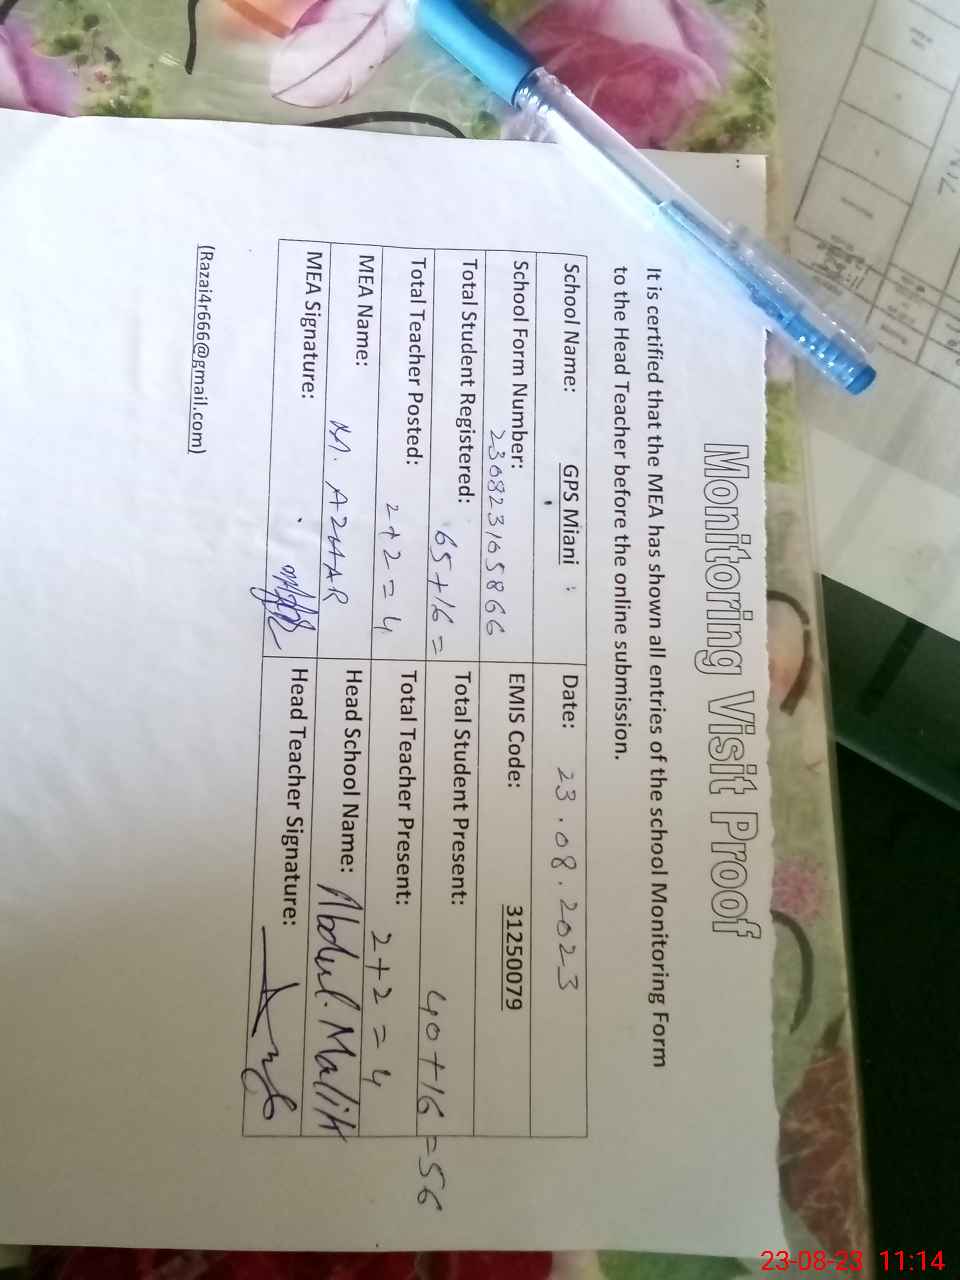 Monitoring Visit Proof
It is certified that the MEA has shown all entries of the school Monitoring Form
to the Head Teacher before the online submission.
School Name: GPS Miani Date: 23.08.2023
School Form Number: 230823105866 EMIS Code: 31250079
Total Student Registered: 65+16= Total Student Present: 40+16=56
Total Teacher Posted: 2+2=4 Total Teacher Present: 2+2=4
MEA Name: M. AZHAR Head School Name: Abdul. Malik
MEA Signature: Head Teacher Signature:
(Razai4r666@gmail.com)
23-08-23 11:14